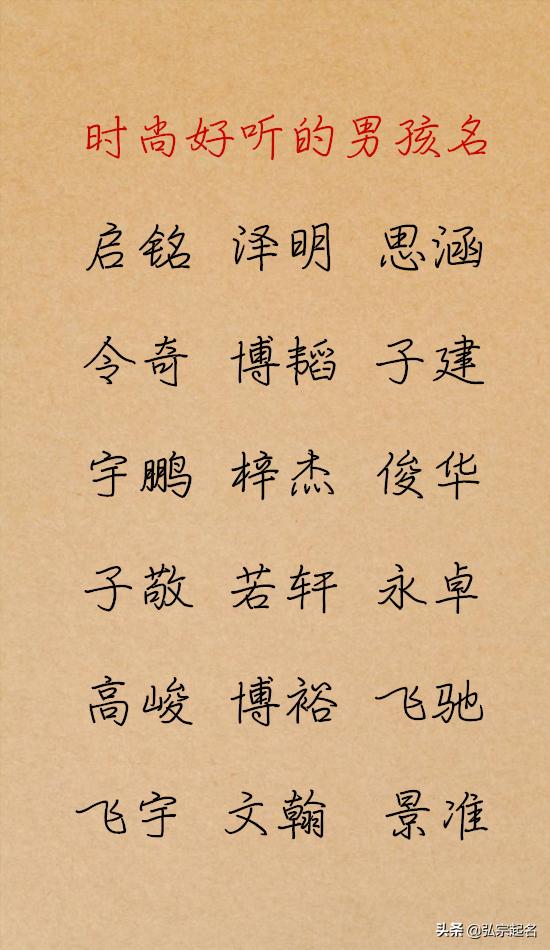 时尚好听的男孩名
启铭 泽明 思涵
令奇 博韬 子建
宇鹏 梓杰 俊华
子敬 若轩 永卓
高峻 博裕 飞驰
飞宇 文翰 景准
头条 @弘宗起名